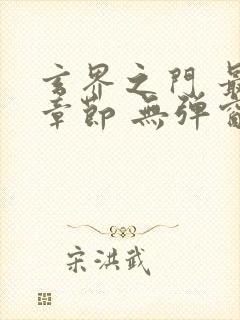 玄界之門 最
章節 無彈窗
宋洪武